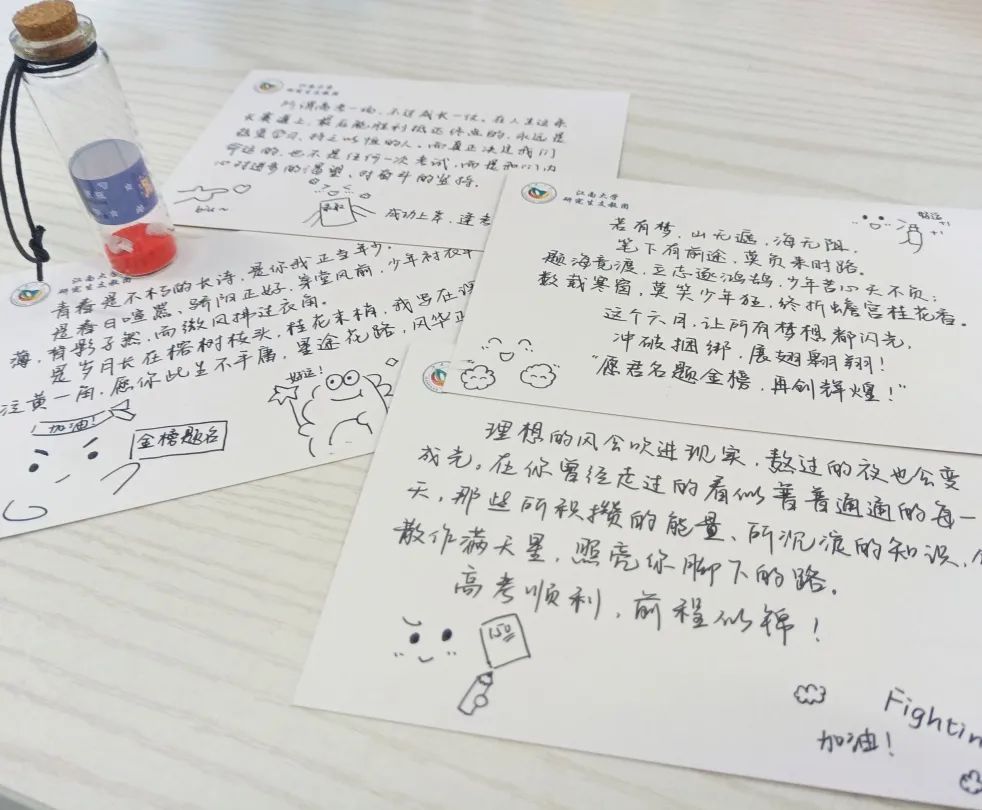 江南大学
研究生支教团
所谓高考一场，不过成长一位。在人生这条
长赛道上，最后能胜利抵达终点的，永远是
热爱学习、持之以恒的人，而真正决定我们
命运的，也不是任何一次考试，而是我们内
心对进步的渴望、对奋斗的坚持。
成功上岸，逢考
江南大学
研究生支教团
好运
+1
+1
若有梦，山无遮，海无阻，
笔下有前途，莫负来时路。
题海竞渡，立志逐鸿鹄，少年苦心天不负；
数载寒窗，莫笑少年狂，终折蟾宫桂花香。
这个六月，让所有梦想都闪光，
冲破捆绑，展翅翱翔！
“愿君名题金榜，再创辉煌！”
江南大学
研究生支教团
青春是不朽的长诗，是你我正当年少。
是春日喧燃、骄阳正好，穿堂风前，少年衬衣单
薄，有影子熬，而微风拂过衣角。
是岁月长在榕树枝头，桂花末梢，我写在
泛黄一角，愿你此生不平庸，星途花路，风华正
加油！
金榜题名
好运！
理想的风会吹进现实，熬过的夜也会变
成光。在你曾经走过的看似普普通通的每一
天，那些所积攒的能量、所沉淀的知识，
散作满天星，照亮你脚下的路。
高考顺利，前程似锦！
150
Fightin
加油！